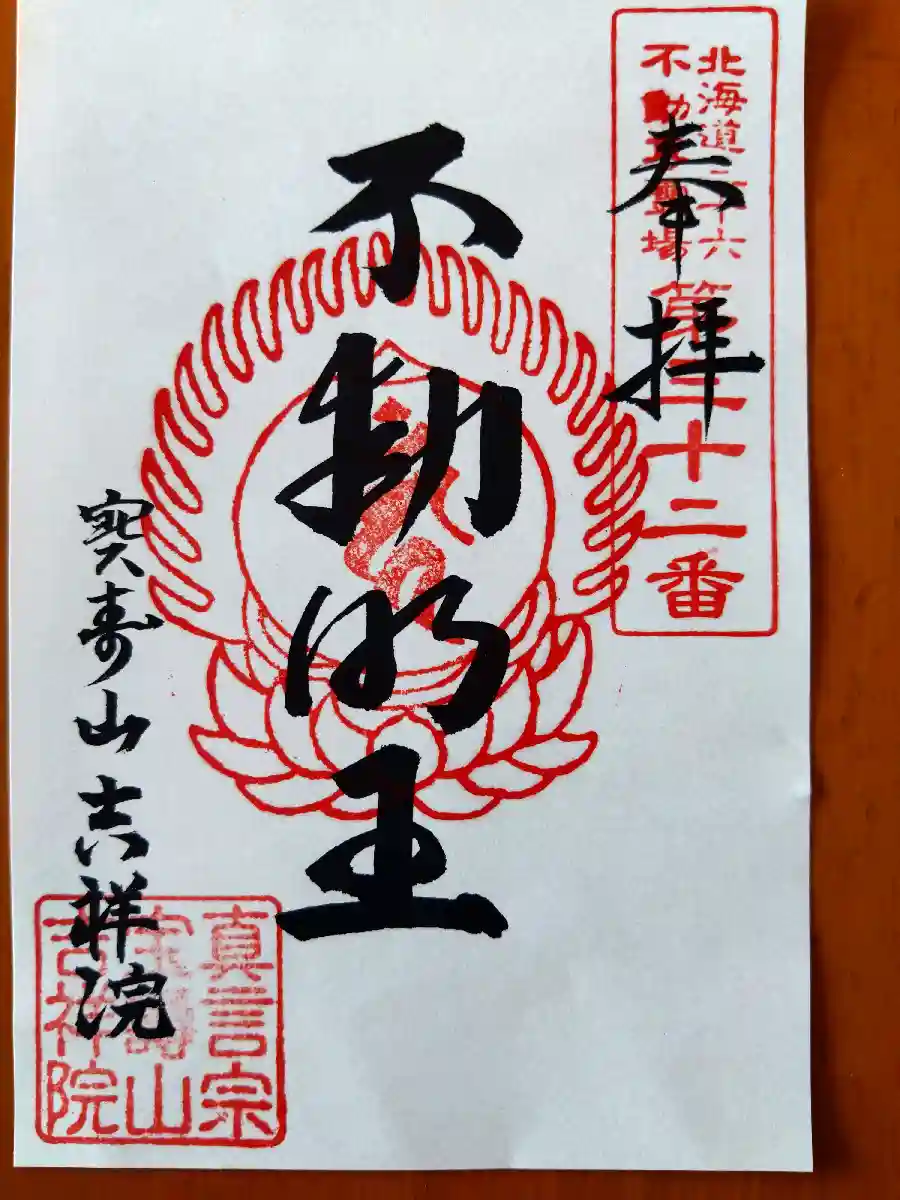 北海道三十六
不動尊霊場
第三十二番
奉拝
不動明王
寳寿山 吉祥院
真言宗
宝壽山
吉祥院